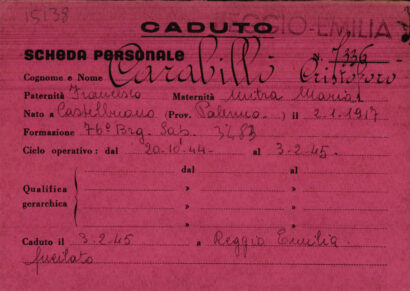 15138
REGGIO-EMILIA
CADUTO
SCHEDA PERSONALE N. 7336
Cognome e Nome Carabillò Cristoforo
Paternità Francesco Maternità Mitra Maria
Nato a Castelbuono (Prov. Palermo) il 2-1-1917
Formazione 76ª Brg. Sap. 3483
Ciclo operativo: dal 20-10-44 al 3-2-45.
dal al
Qualifica » »
gerarchica » »
» »
Caduto il 3-2-45 a Reggio Emilia
fucilato